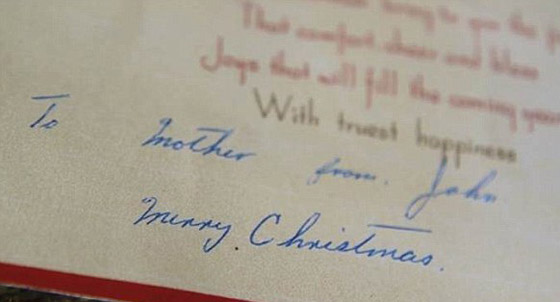 bring to you the
That comfort cheer and bless
Joys that will fill the coming year
With truest happiness
To Mother from. John
Merry. Christmas.